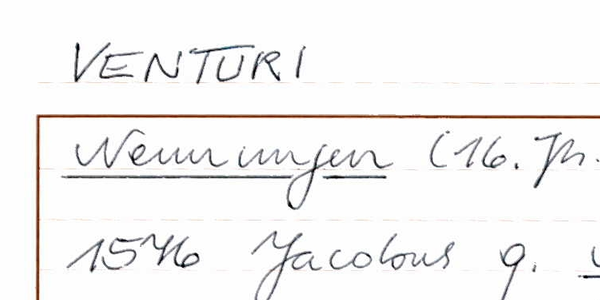 VENTURI
Nennungen (16. Jh.
1546 Jacobus q.